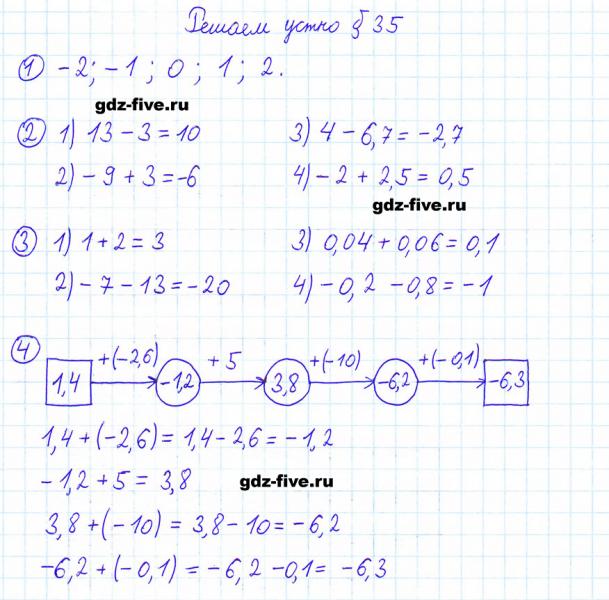 Решаем устно § 35
① -2; -1 ; 0 ; 1 ; 2.
gdz-five.ru
② 1) 13 - 3 = 10 3) 4 - 6,7 = -2,7
2) - 9 + 3 = -6 4) - 2 + 2,5 = 0,5
gdz-five.ru
③ 1) 1 + 2 = 3 3) 0,04 + 0,06 = 0,1
2) - 7 - 13 = - 20 4) - 0,2 - 0,8 = - 1
④ +(-2,6) + 5 +(-10) +(-0,1)
1,4 -1,2 3,8 -6,2 -6,3
1,4 + (-2,6) = 1,4 - 2,6 = - 1,2
- 1,2 + 5 = 3,8
gdz-five.ru
3,8 + (-10) = 3,8 - 10 = - 6,2
-6,2 + (-0,1) = - 6,2 - 0,1 = -6,3